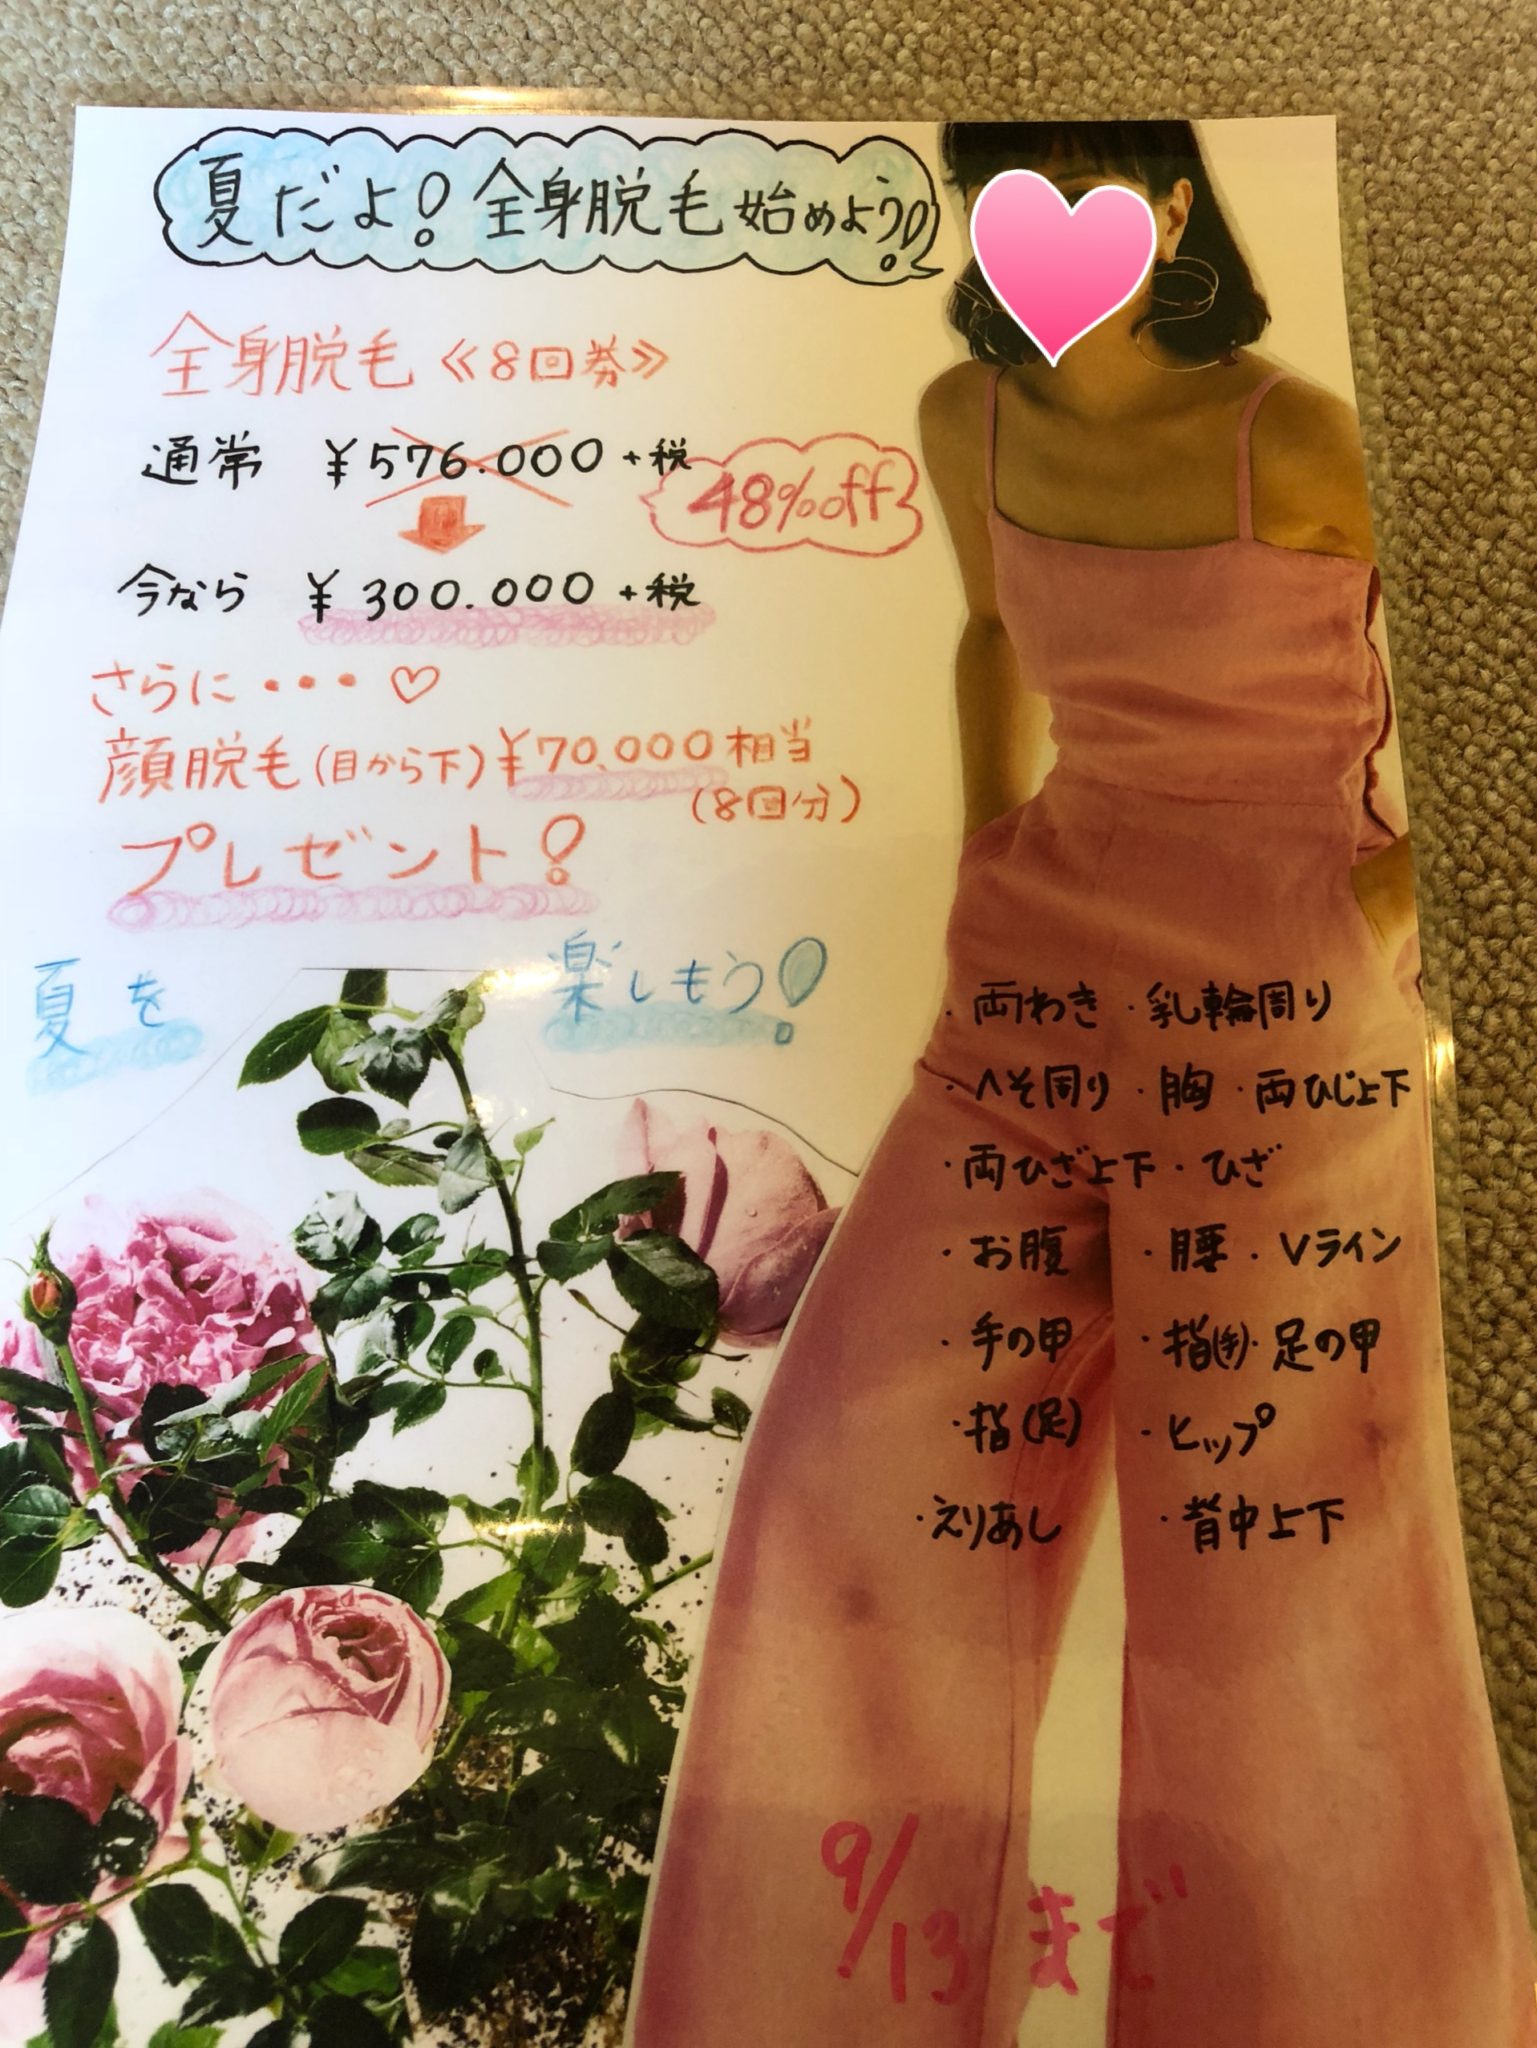 夏だよ!全身脱毛始めよう!
全身脱毛≪8回券≫
通常 ¥576.000+税
48%off
今なら ¥300.000+税
さらに・・・♡
顔脱毛(目から下)¥70.000相当
(8回分)
プレゼント!
夏を 楽しもう!
・両わき ・乳輪周り
・へそ周り ・胸 ・両ひじ上下
・両ひざ上下 ・ひざ
・お腹 ・腰 ・Vライン
・手の甲 ・指(手)・足の甲
・指(足) ・ヒップ
・えりあし ・背中上下
9/13まで